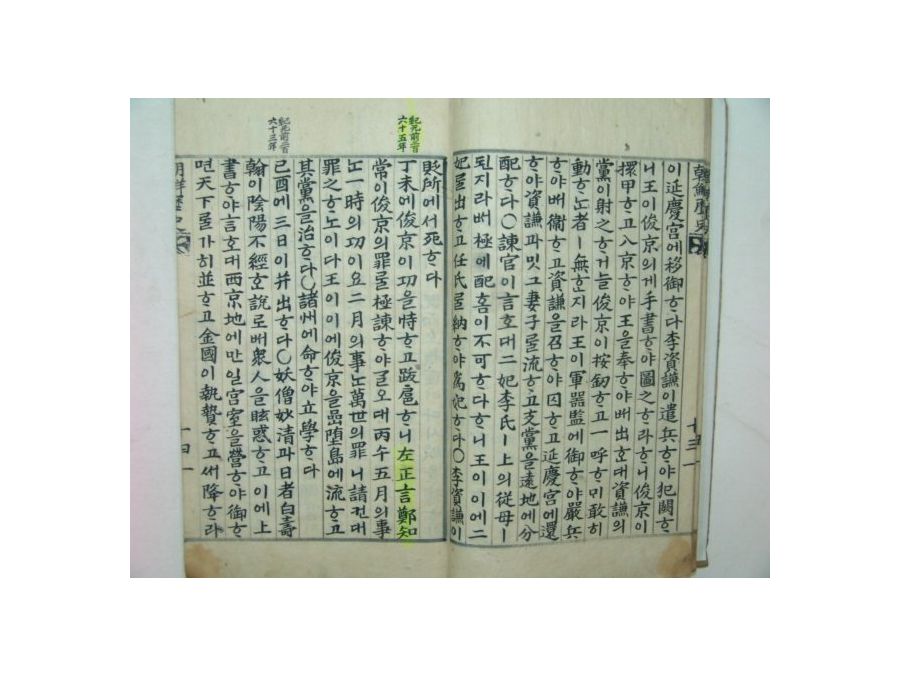 朝鮮歷史
이延慶宮에移御ᄒᆞ다李資謙이遣兵ᄒᆞ야犯闕ᄒᆞ
니王이俊京의게手書ᄒᆞ야圖之ᄒᆞ라ᄒᆞ니俊京이
擐甲ᄒᆞ고入京ᄒᆞ야王을奉ᄒᆞ야ᄡᅥ出ᄒᆞᆫ대資謙의
黨이射之ᄒᆞ거늘俊京이按釰ᄒᆞ고一呼ᄒᆞᄆᆡ敢히
動ᄒᆞᄂᆞᆫ者ㅣ無ᄒᆞᆫ지라王이軍器監에御ᄒᆞ야嚴兵
ᄒᆞ야ᄡᅥ衞ᄒᆞ고資謙을召ᄒᆞ야囚ᄒᆞ고延慶宮에還
ᄒᆞ야資謙과밋그妻子ᄅᆞᆯ流ᄒᆞ고支黨을遠地에分
配ᄒᆞ다○諫官이言ᄒᆞᆫ대二妃李氏ㅣ上의從母ㅣ
된지라ᄡᅥ極에配홈이不可ᄒᆞ다ᄒᆞ니王이이에二
妃ᄅᆞᆯ出ᄒᆞ고任氏ᄅᆞᆯ納ᄒᆞ야爲妃ᄒᆞ다○李資謙이
十三
貶所에서死ᄒᆞ다
紀元前二百六十五年
丁未에俊京이功을恃ᄒᆞ고跋扈ᄒᆞ니左正言鄭知
常이俊京의罪ᄅᆞᆯ極諫ᄒᆞ야ᄀᆞᆯ오대丙午五月의事
ᄂᆞᆫ一時의功이요二月의事ᄂᆞᆫ萬世의罪니請컨대
罪之ᄒᆞ노이다王이이에俊京을嵒墮島에流ᄒᆞ고
其黨을治ᄒᆞ다○諸州에命ᄒᆞ야立學ᄒᆞ다
紀元前二百六十三年
己酉에三日이幷出ᄒᆞ다○妖僧妙淸과日者白壽
翰이陰陽不經ᄒᆞᆫ說로ᄡᅥ衆人을眩惑ᄒᆞ고이에上
書ᄒᆞ야言ᄒᆞᆫ대西京地에만일宮室을營ᄒᆞ야御ᄒᆞ
면天下ᄅᆞᆯ가히並ᄒᆞ고金國이執贄ᄒᆞ고써降ᄒᆞ라
十四